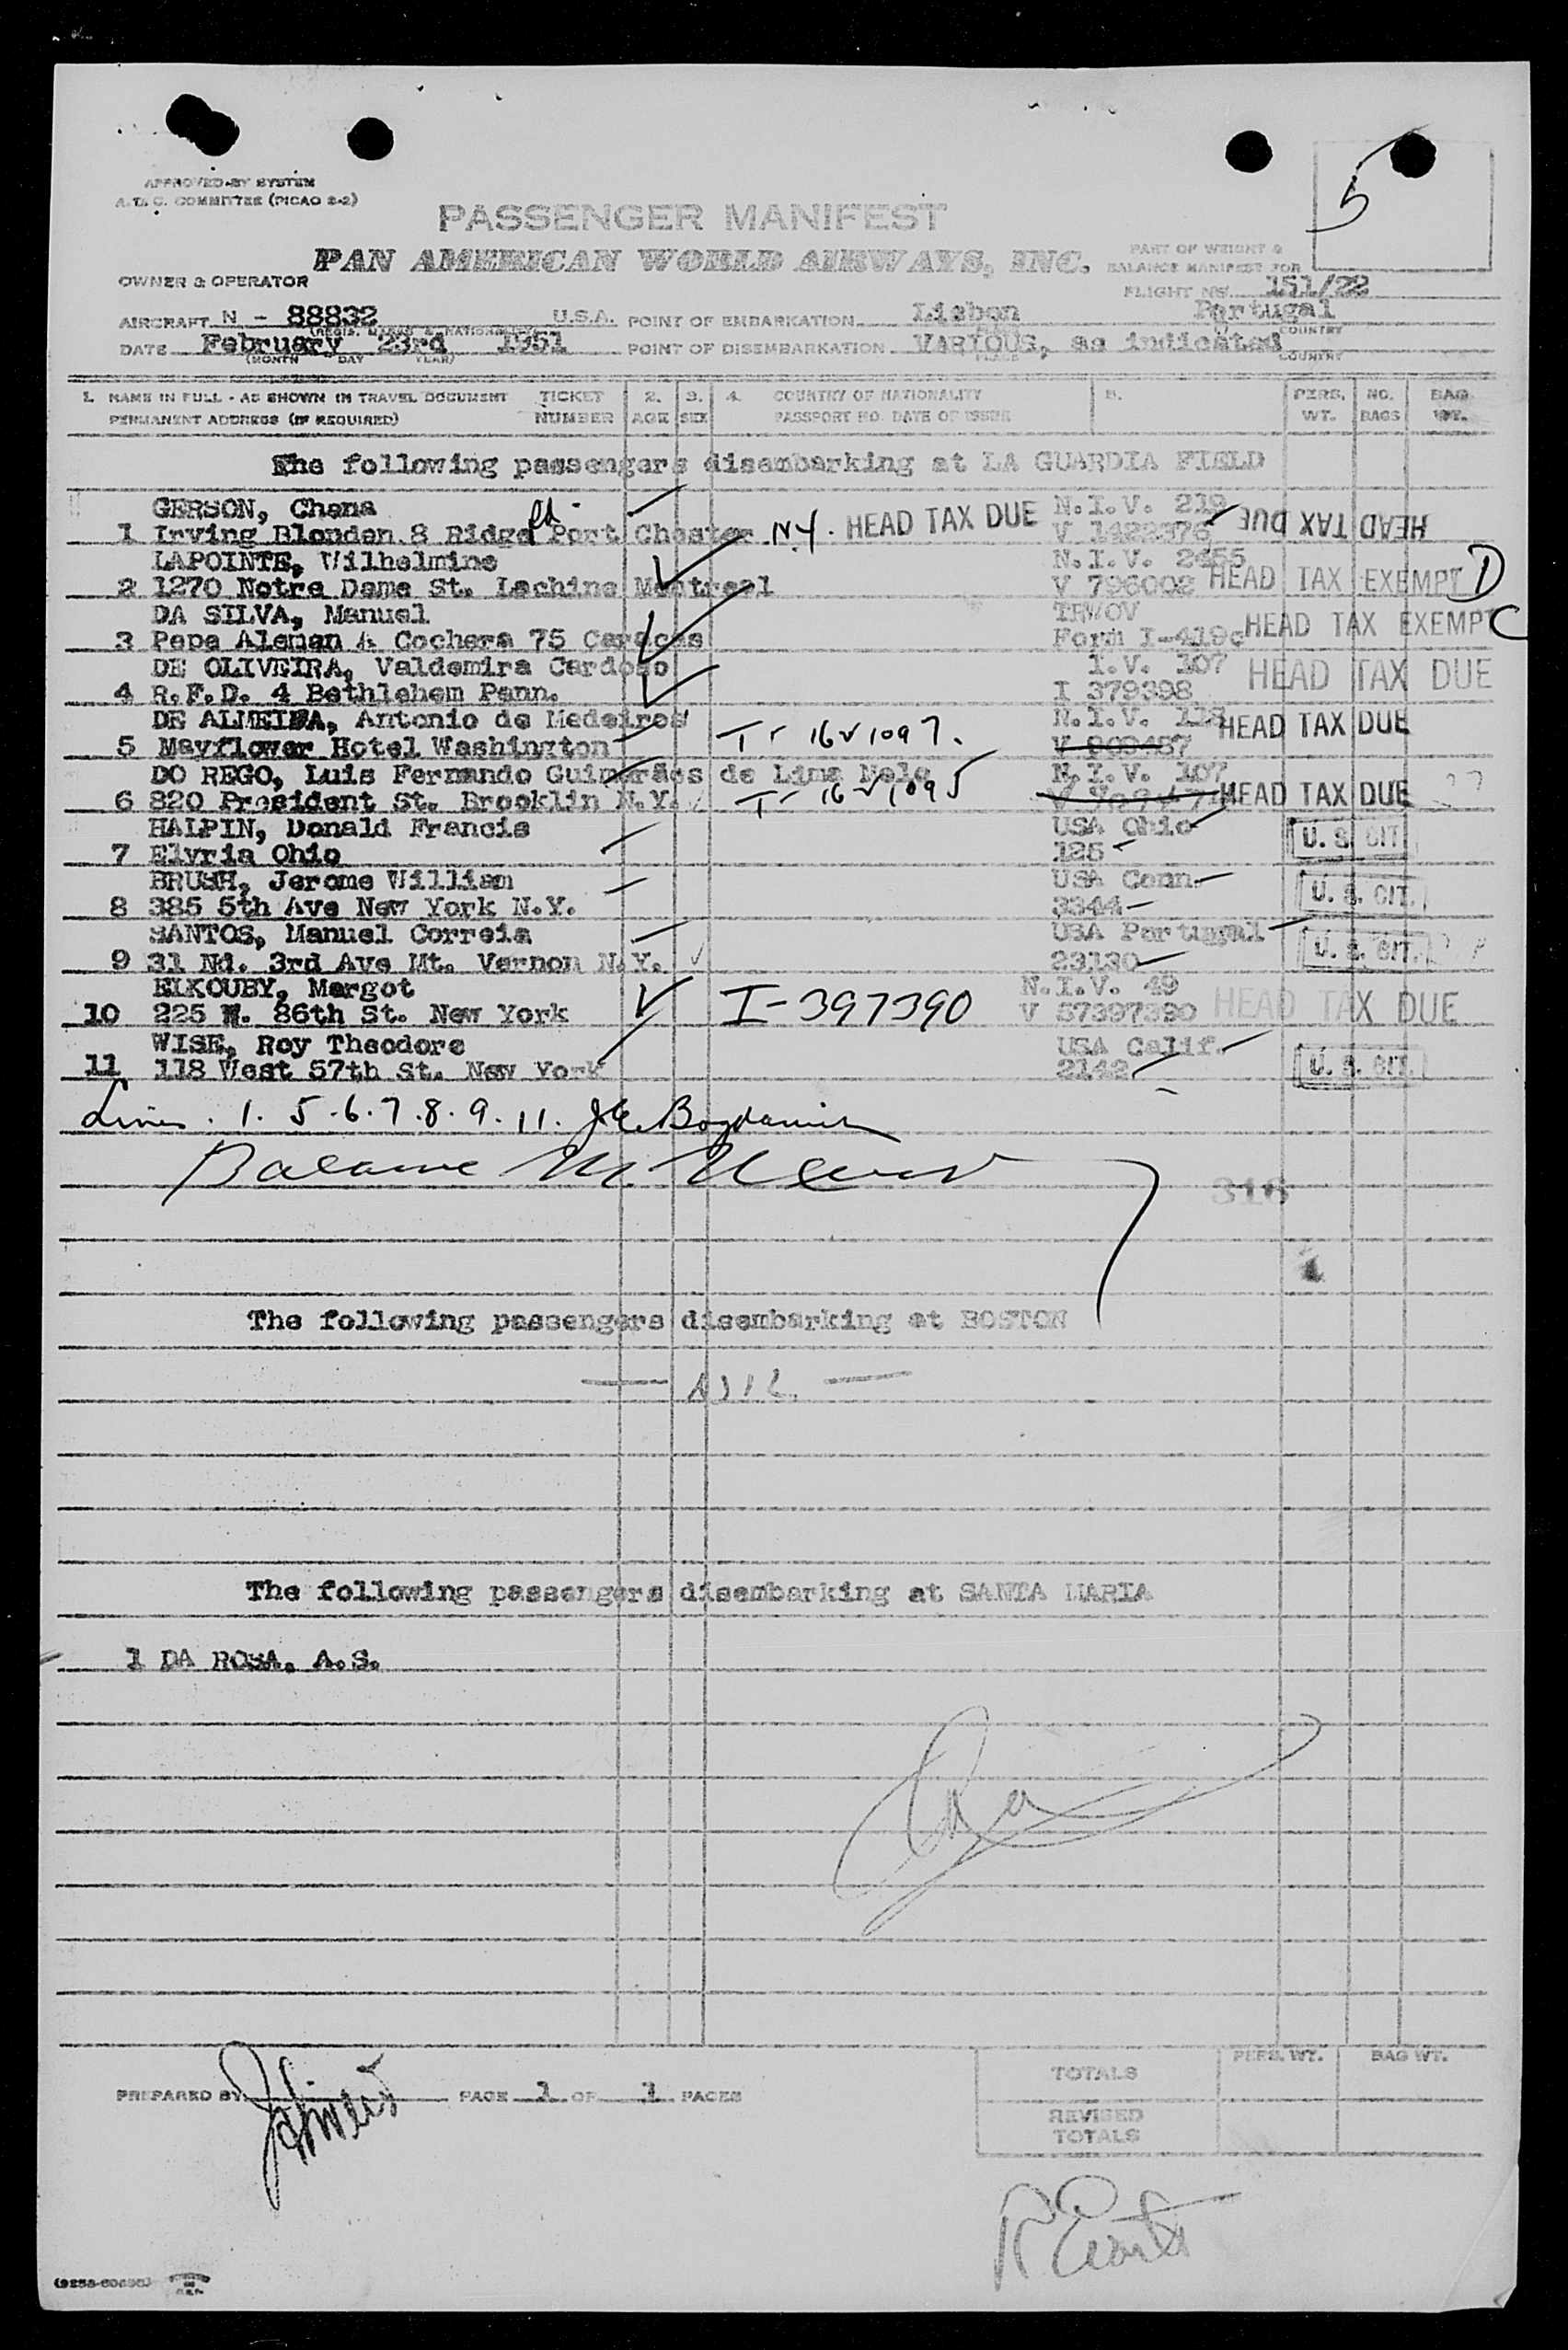 APPROVED BY SYSTEM
A.T.C. COMMITTEE (PICAO 2-2)
5
PASSENGER MANIFEST
PAN AMERICAN WORLD AIRWAYS, INC.
PART OF WEIGHT &
BALANCE MANIFEST FOR
OWNER & OPERATOR
FLIGHT NO. 151/22
AIRCRAFT N - 88832 U.S.A. POINT OF EMBARKATION Lisbon Portugal
DATE February 23rd 1951 POINT OF DISEMBARKATION VARIOUS, as indicated
(MONTH DAY YEAR) PLACE COUNTRY
1. NAME IN FULL - AS SHOWN IN TRAVEL DOCUMENT TICKET 2. 3. 4. COUNTRY OF NATIONALITY 5. PERS. NO. BAG
PERMANENT ADDRESS (IF REQUIRED) NUMBER AGE SEX PASSPORT NO. DATE OF ISSUE WT. BAGS WT.
The following passengers disembarking at LA GUARDIA FIELD
GERSON, Chana N.I.V. 219
1 Irving Blonden 8 Ridge Port Chester N.Y. HEAD TAX DUE V 1422376 HEAD TAX DUE
LAPOINTE, Wilhelmine N.I.V. 2455
2 1270 Notre Dame St. Lachine Montreal V 796002 HEAD TAX EXEMPT D
DA SILVA, Manuel TRWOV
3 Papa Aleman A Cochera 75 Caracas Form I-419c HEAD TAX EXEMPT C
DE OLIVEIRA, Valdemira Cardoso I.V. 107
4 R.F.D. 4 Bethlehem Penn. I 379398 HEAD TAX DUE
DE ALMEIDA, Antonio de Medeiros N.I.V. 112 HEAD TAX DUE
5 Mayflower Hotel Washington T- 16 V 1097.
DO REGO, Luis Fernando Guimarães de Lima Melo N.I.V. 107
6 820 President St. Brooklin N.Y. T- 16 V 1095 HEAD TAX DUE
HALPIN, Donald Francis USA Ohio
7 Elyria Ohio 125 U.S. CIT.
BRUSH, Jerome William USA Conn.
8 385 5th Ave New York N.Y. 3344 U.S. CIT.
SANTOS, Manuel Correia USA Portugal
9 31 Nd. 3rd Ave Mt. Vernon N.Y. 23130 U.S. CIT.
ELKOUBY, Margot N.I.V. 49
10 225 W. 86th St. New York I-397390 V 37397390 HEAD TAX DUE
WISE, Roy Theodore USA Calif.
11 118 West 57th St. New York 2142 U.S. CIT.
Lines. 1. 5. 6. 7. 8. 9. 11.
Balance
316
The following passengers disembarking at BOSTON
NIL
The following passengers disembarking at SANTA MARIA
1 DA ROSA, A.S.
PREPARED BY PAGE 1 OF 1 PAGES
PERS. WT. BAG WT.
TOTALS
REVISED
TOTALS